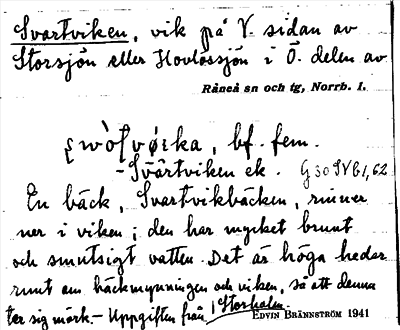 Svartviken, vik på V. sidan av
Storsjön eller Hovlössjön i Ö. delen av
Råneå sn och tg, Norrb. l.
bf. fem.
- Svartviken ek. G 30 SV b1,62
En bäck, Svartvikbäcken, rinner
ner i viken; den har mycket brunt
och smutsigt vatten. Det är höga hedar
runt om bäckmynningen och viken, så att denna
ter sig mörk. - Uppgiften från Storholm.
EDVIN BRÄNNSTRÖM 1941